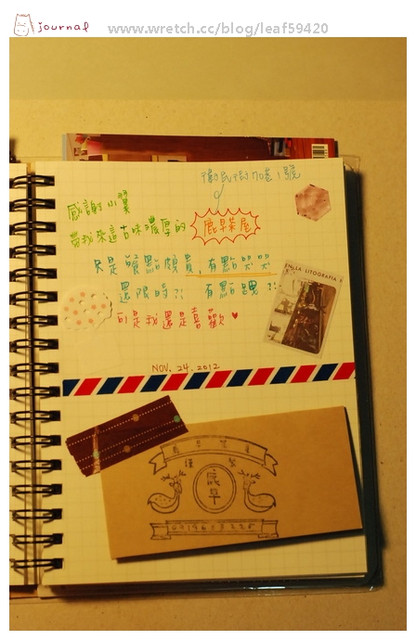 journal
www.wretch.cc/blog/leaf59420
衛民街70巷1號
感謝小翼
帶我來這古味濃厚的
鹿早茶屋
只是餐點頗貴，有點哭哭
還限時?! 有點跩?!
可是我還是喜歡♥
LITOGRAFIA
NOV. 24. 2012
鹿早茶屋
鹿早